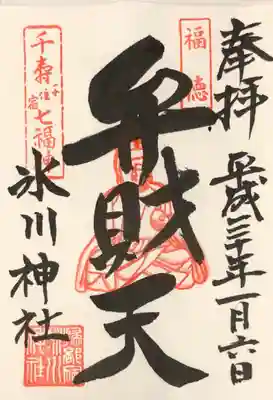 奉拝
平成三十年一月六日
福徳
弁財天
千寿七福神
千住宿
氷川神社